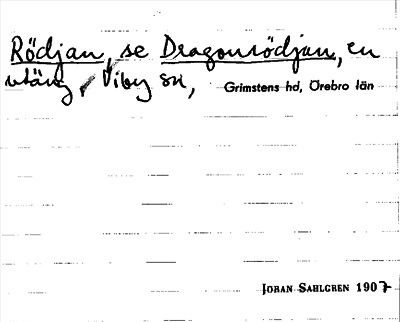 Rödjan, se Dragonrödjan, en
utäng, Viby sn, Grimstens hd, Örebro län
JORAN SAHLGREN 1907